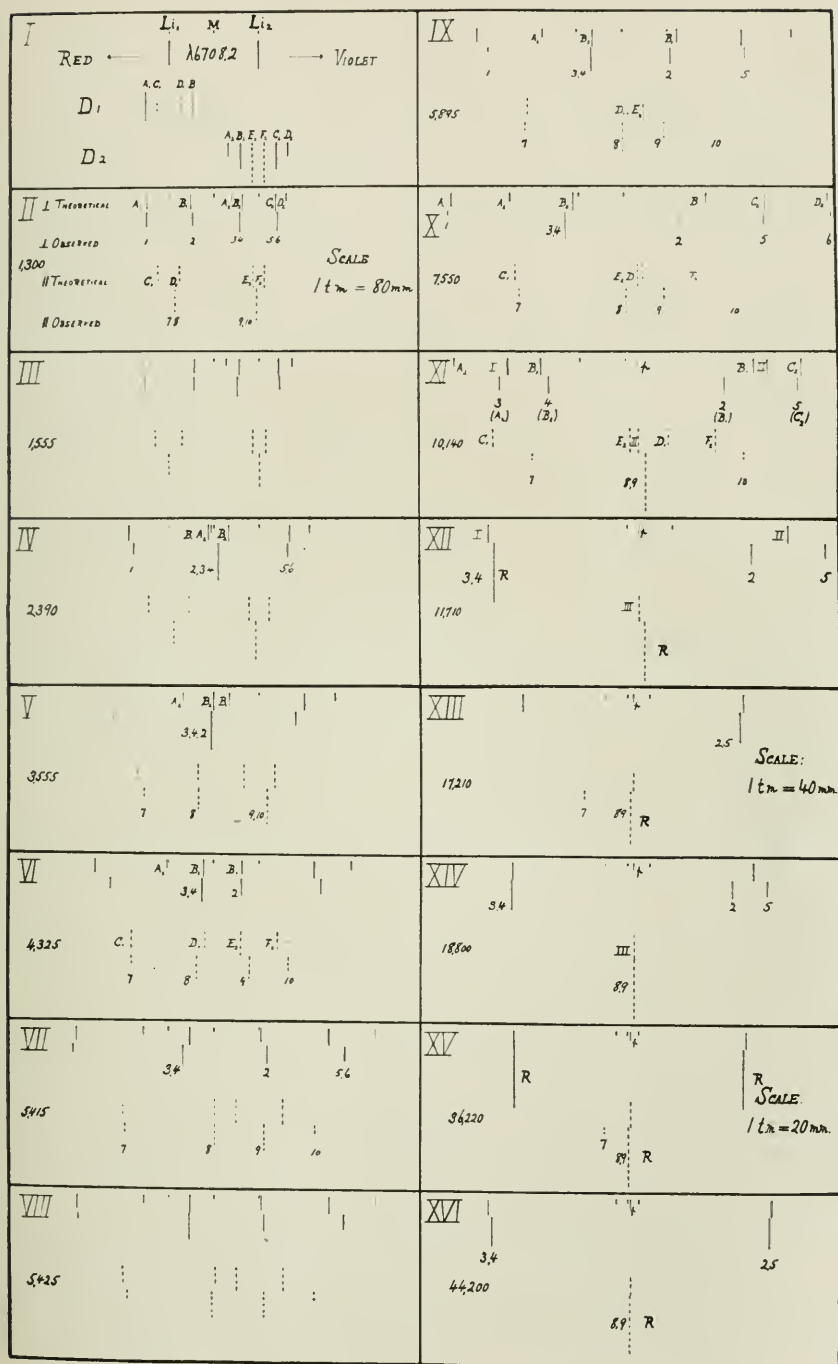 I
Li₁ M Li₂
RED ← λ6708.2 → VIOLET
A, C, D, B
D1
A₂ B₂ E₂ F₂ C₂ D₂
D2
II
⊥ THEORETICAL A, B, A₂ B₂ C₂ D₂
⊥ OBSERVED 1 2 34 56
1,300
|| THEORETICAL C, D, E₂ F₂
|| OBSERVED 78 9,10
SCALE
1 tm = 80mm
III
1,555
IV
B, A₂ B₂
1 2,3,4 5,6
2,390
V
A₂ B₂ B,
3,4,2
3,555
7 8 9,10
VI
A₂ B₂ B,
3,4 2
4,325 C, D, E₂ F₂
7 8 9 10
VII
3,4 2 5,6
5,415
7 8 9 10
VIII
5,425
IX
A₂ B₂ B,
1 3,4 2 5
5,895 D, E₂
7 8 9 10
X
A, A₂ B₂ B C₂ D₂
1 3,4 2 5 6
7,550 C, E₂ D F₂
7 8 9 10
XI
A₂ I B₂ + B, II C₂
3 4 2 5
(A₂) (B₂) (B,) (C₂)
10,140 C, E₂ III D, F₂
7 8,9 10
XII
I + II
3,4 R 2 5
11,710 III
R
XIII
+
2,5
17,210
7 8,9 R
SCALE:
1 tm = 40mm.
XIV
+
3,4 2 5
18,800 III
8,9
XV
+
R R
36,220
7 8,9 R
SCALE.
1 tm = 20mm.
XVI
+
3,4 2,5
44,200
8,9 R